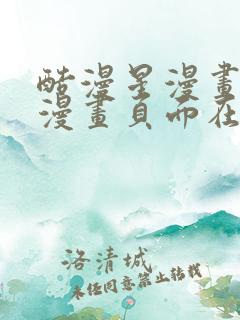 酷漫星漫畫
漫畫頁面在
洛清城
未经同意禁止转载